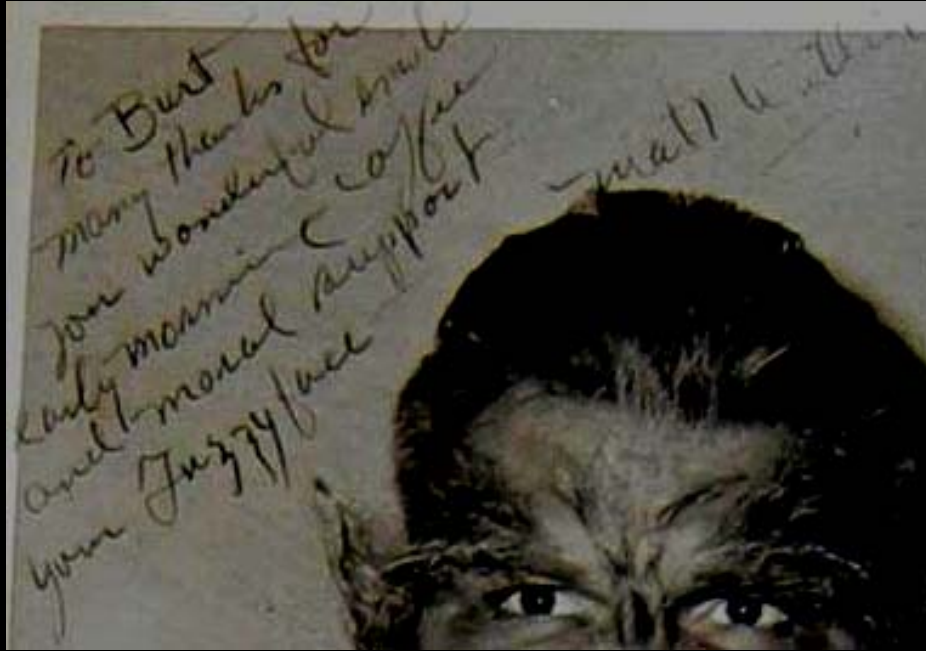 To Burt
many thanks for
your wonderful
early morning coffee
and moral support
your Fuzzy face
Matt